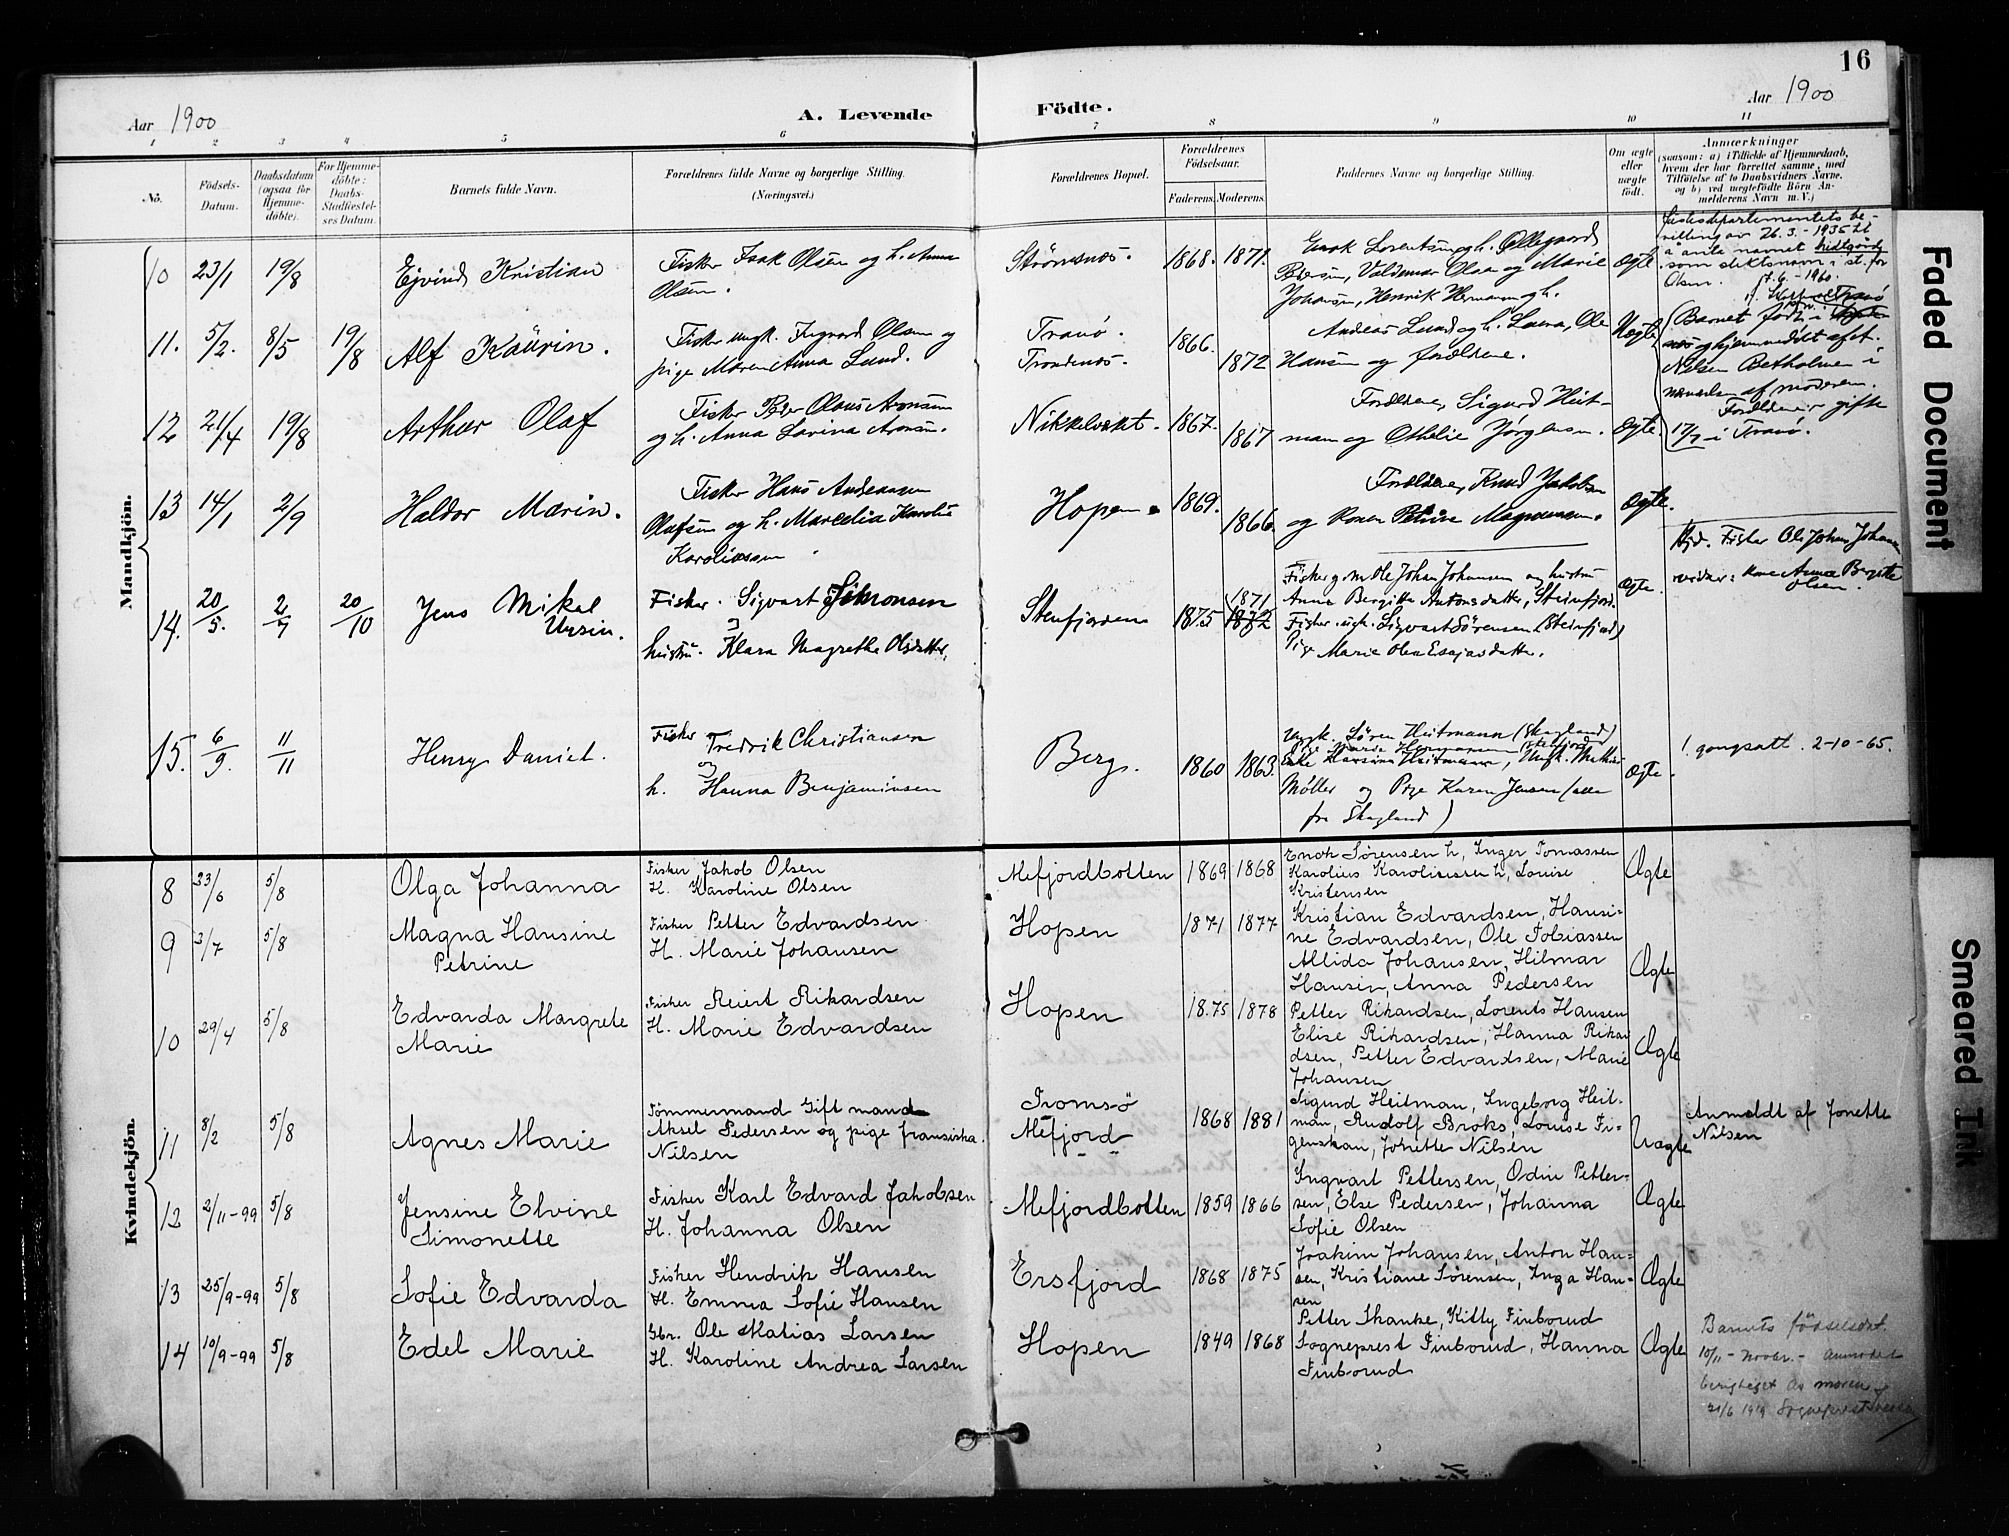 16
Aar 1900
A. Levende
Födte.
Aar 1900
1 2 3 4 5 6 7 8 9 10 11
No.
Födsels-
Datum.
Daabsdatum
(ogsaa for
Hjemme-
döbte).
For Hjemme-
döbte:
Daabs-
Stadfæstel-
ses Datum.
Barnets fulde Navn.
Forældrenes fulde Navne og borgerlige Stilling.
(Næringsvei.)
Forældrenes Bopæl.
Forældrenes
Födselsaar.
Faderens. Moderens.
Faddernes Navne og borgerlige Stilling.
Om ægte
eller
uægte
födt.
Anmærkninger
(saasom: a) i Tilfælde af Hjemmedaab,
hvem der har forrettet samme, med
Tilföielse af to Daabsvidners Navne,
og b) ved uægtefödte Börn An-
melderens Navn m. V.)
Mandkjön.
10 23/1 19/8
Ejvind Kristian
Fisker Isak Olsen og h. Anna
Olsen.
Strömsnæs. 1868. 1871.
Enok Lorentsen og h. Ollegaard
Pedersen, Valdemar Olsa og Marie
Johansen, Henrik Hermann og h.
Ægte
bevilling av 26.3.-1935 til
å anta navnet
som slektsnavn i st. for
Olsen. -6-1960.
11. 5/2. 8/5 19/8
Alf Kaurin.
Fisker ungk. Ingvard Olsen og
pige Maren Anna Lund.
Tranö.
Trondenæs.
1866. 1872
Andreas Lund og h. Laura, Ole
Hansen og forældrene.
Uægte
Barnet født i
og hjemmedöbt af
Nilsen Betholmen i
nærværelse af moderen.
Forældrene gifte
17/7 i Tranö.
12 21/4 19/8
Arthur Olaf
Fisker Peder Olaus Aronsen
og h. Anna Lovina Aronsen.
Nikkelverket. 1867. 1867
Forældrene, Sigurd Heit-
man og Othelie Jörgensen.
Ægte.
13 14/1 2/9
Haldor Marin.
Fisker Hans Andreassen
Olafsen og h. Marcelia Karolius
Karoliussen
Hopen. 1869. 1866.
Forældrene, Knud Jakobsen
og Konen Petrine Magnussen.
Ægte.
14. 20/5. 2/7 20/10
Jens Mikal
Ursin.
Fisker. Sigvart Sökronsen
og
hustru. Klara Magrethe Olsdatter,
Stenfjorden 1875 1871 1872
Fisker g. m. Ole Johan Johansen og hustru
Anna Bergitte Antonsdatter, Steinfjord.
Fisker ungk. Sigvart Sörensen (Steinfjord)
Pige Marie Olea Esajasdatter.
Ægte.
Hjd. Fisker Ole Johan Johansen
vidner: Kone Anna Bergitte
Olsen.
15. 6/9. 11/11
Henry Daniel.
Fisker Fredrik Christiansen
og
h. Hanna Benjaminsen
Berg. 1860 1863.
Ungk. Sören Heitmann (Skagland)
Enke Hansina Heitmann, Ungk. Mathias
Möller og Pige Karen Jensen (alle
fra Skagland)
Ægte.
1. gangsatt. 2-10-65.
Kvindekjön.
8 23/6 5/8
Olga Johanna
Fisker Jakob Olsen
H. Karoline Olsen
Mefjordbotten 1869 1868
Enok Sørensen h, Inger Tomassen
Karolius Karoliussen h, Louise
Kristensen
Ægte
9 3/7 5/8
Magna Hansine
Petrine
Fisker Petter Edvardsen
H. Marie Johansen
Hopen 1871 1877
Kristian Edvardsen, Hansi-
ne Edvardsen, Ole Tobiassen
Allida Johansen, Hilmar
Hansen, Anna Pedersen
Ægte
10 29/4 5/8
Edvarda Margrete
Marie
Fisker Reiert Rikardsen
H. Marie Edvardsen
Hopen 1875 1878
Petter Rikardsen, Lorents Hansen
Elise Rikardsen, Hanna Rikar
dsen, Petter Edvardsen, Marie
Johansen
Ægte
11 8/2 5/8
Agnes Marie
Tömmermand Gift mand
Aksel Pedersen og pige fransiska
Nilsen
Tromsö
Mefjord
1868 1881
Sigurd Heitman, Ingeborg Heit-
man, Rudolf Broks, Louise Fi-
genskau, Jonette Nilsen
Uægte
Anmeldt af Jonette
Nilsen
12 2/11-99 5/8
Jensine Elvine
Simonette
Fisker Karl Edvard Jakobsen
H. Johanna Olsen
Mefjordbotten 1859 1866
Ingvart Pettersen, Odin Petter-
sen, Else Pedersen, Johanna
Sofie Olsen
Ægte
13 25/9-99 5/8
Sofie Edvarda
Fisker Hendrik Hansen
H. Emma Sofie Hansen
Ersfjord 1868 1875
Joakim Johansen, Anton Han-
sen, Kristiane Sørensen, Inga Han-
sen
Ægte
14 10/9-99 5/8
Edel Marie
Gbr. Ole Matias Larsen
H. Karoline Andrea Larsen
Hopen 1849 1868
Petter Skanke, Kitty Finborud
Sogneprest Finborud, Hanna
Finborud
Ægte
Barnets födselsdat.
10/11 - Novbr. -
berigtiget av moren
21/6 1919 Sogneprest
Faded Document
Smeared Ink